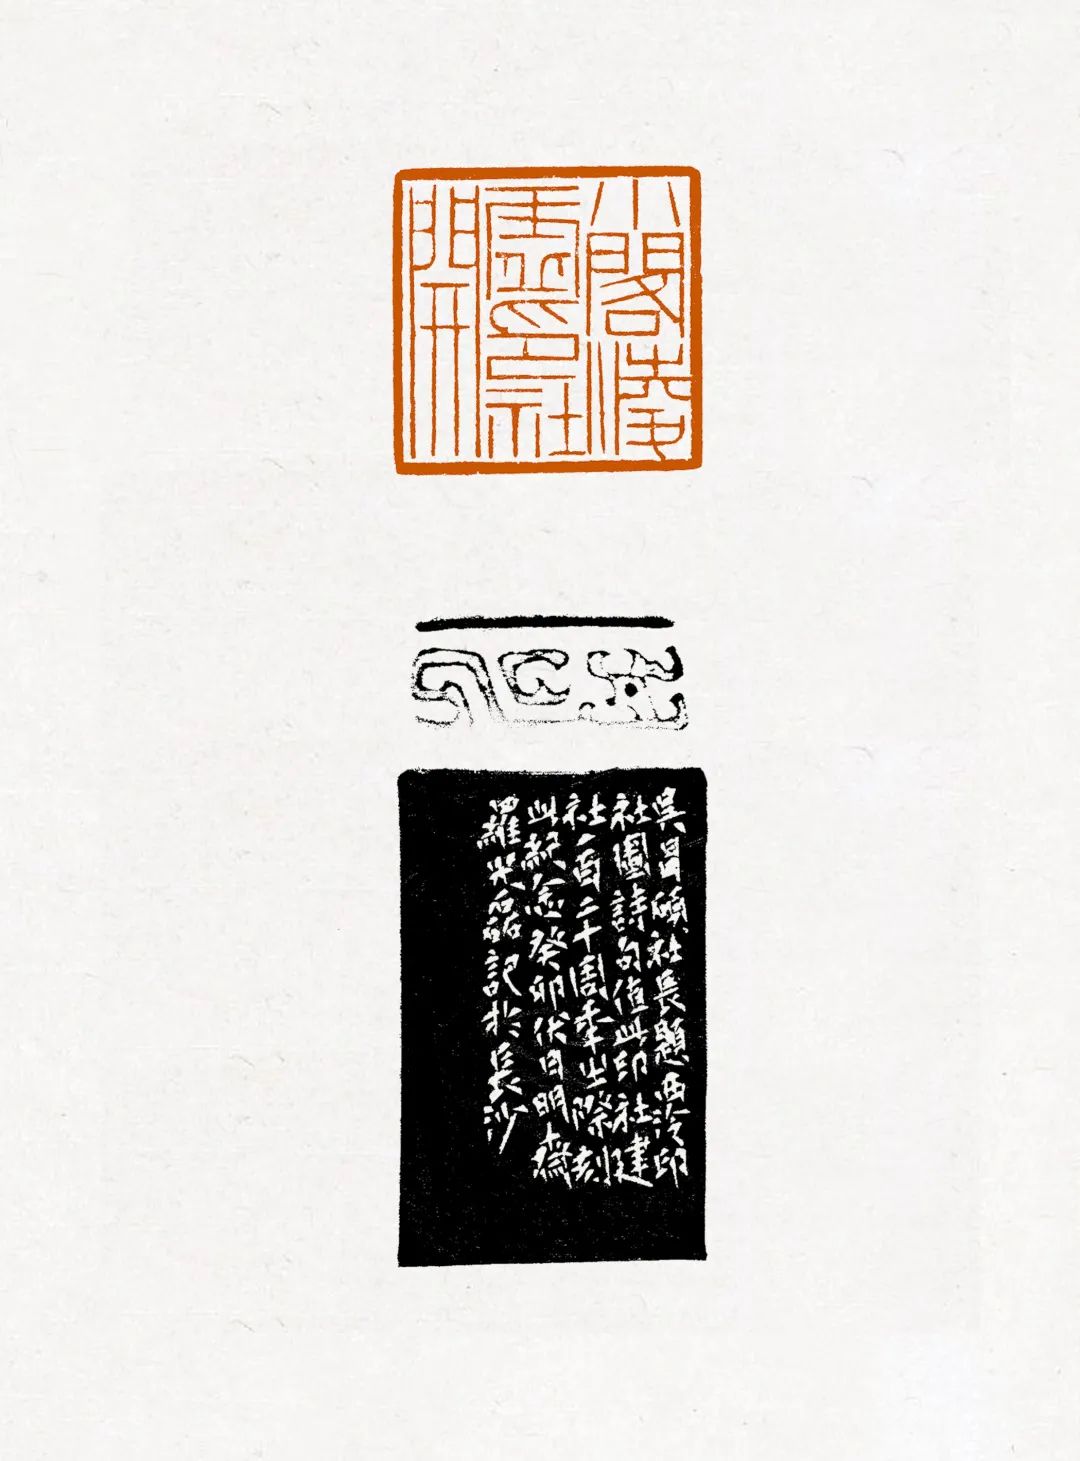 小閣凌
虛印社
開
吳昌碩社長題西泠印
社圖詩句值此印社建
社一百二十周年之際刻
此紀念癸卯伏日明齋
羅光磊記於長沙